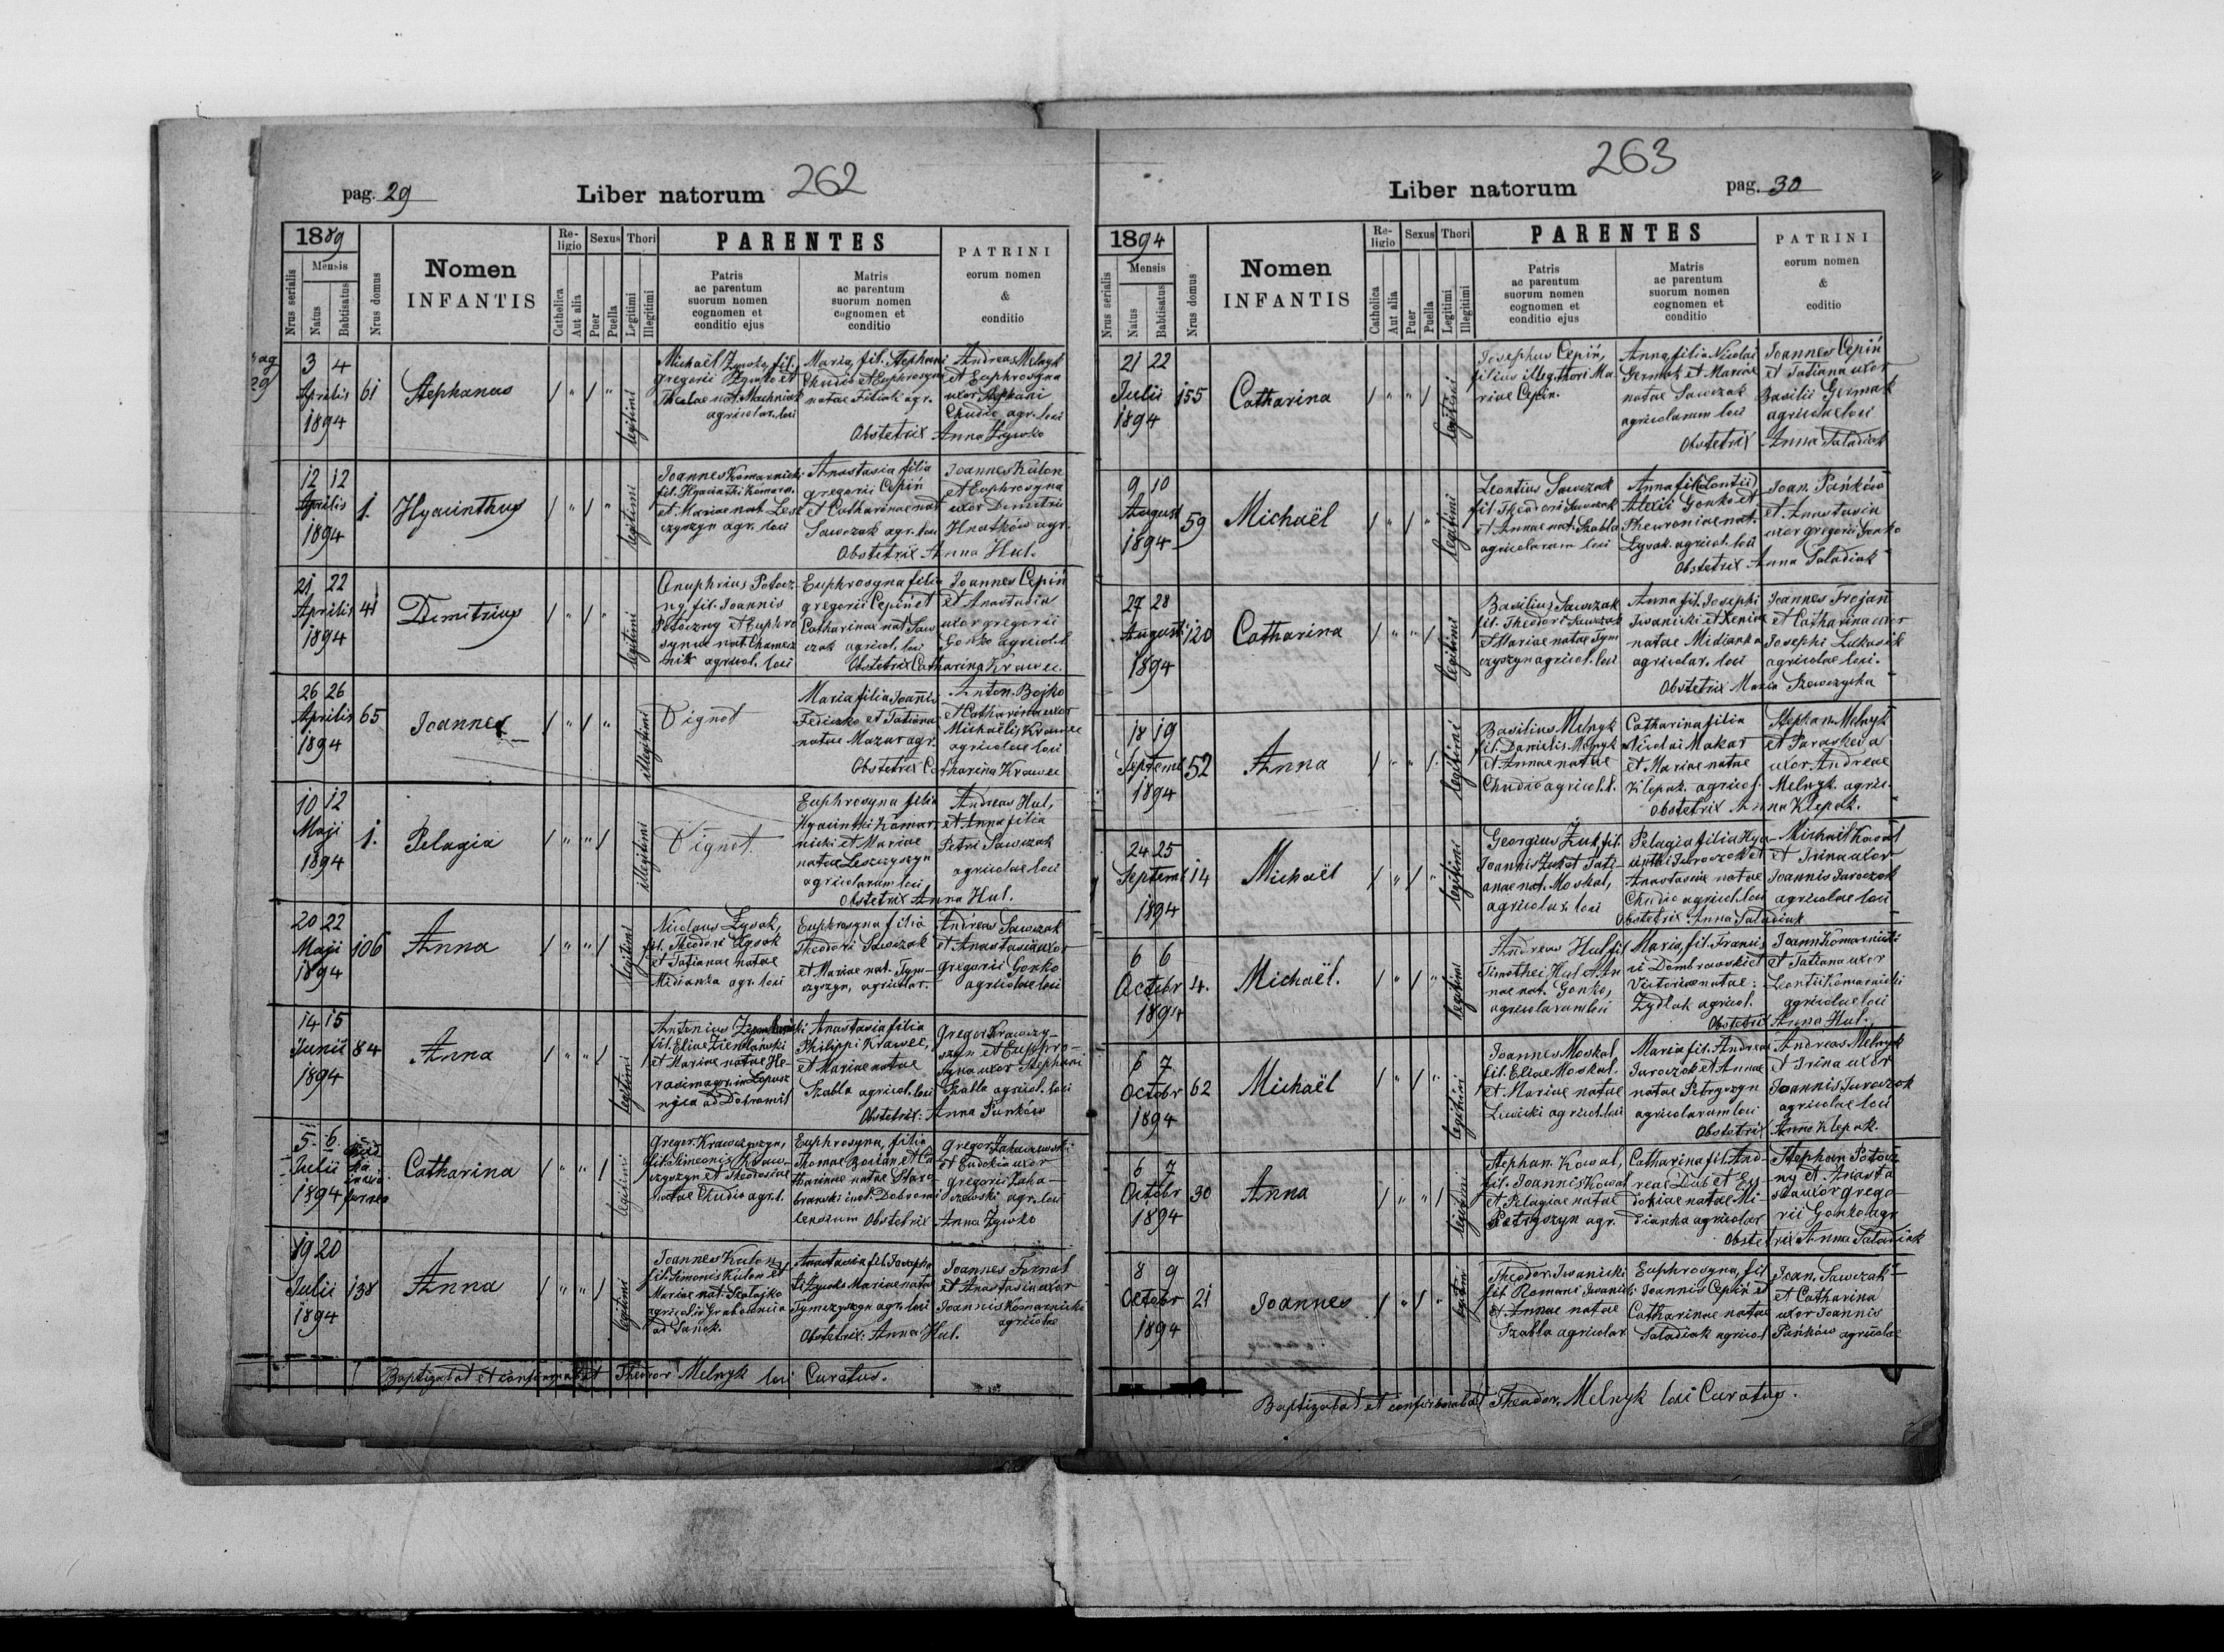 262
pag. 29
Liber natorum
1889
Mensis
Nrus serialis
Natus
Babtisatus
Nrus domus
Nomen
INFANTIS
Religio
Catholica
Aut alia
Sexus
Puer
Puella
Thori
Legitimi
Illegitimi
PARENTES
Patris
ac parentum
suorum nomen
cognomen et
conditio ejus
Matris
ac parentum
suorum nomen
cognomen et
conditio
PATRINI
eorum nomen
&
conditio
pag
29
3 4
Aprilis
1894
61
Stephanus
legitimi
Michaël Żywko, fil.
Gregorii Żywko et
Theclae nat. Machniak
agricolar. loci
Maria, fil. Stephani
Chudio et Euphrosyna
natae Filiak agr.
Andreas Melnyk
et Euphrosyna
uxor Stephani
Chudio agr. loci
Obstetrix Anna Żywko
12 12
Aprilis
1894
1.
Hyacinthus
legitimi
Joannes Komarnicki
fil. Hyacinthi Komarn.
et Mariae nat. Lesz
czyszyn agr. loci
Anastasia filia
Gregorii Cepiń
et Catharinae nat
Sawczak agr. loci
Joannes Kulon
et Euphrosyna
uxor Demitrii
Hnatków agr.
Obstetrix Anna Hul.
21 22
Aprilis
1894
41
Demitrius
legitimi
Onuphrius Potocz
ny, fil. Joannis
Potoczny et Euphro
synae nat.
agricol. loci
Euphrosyna filia
Gregorii Cepiń et
Catharinae nat Saw
czak agricol. loci
Joannes Cepiń
et Anastasia
uxor Gregorii
Gonko agricol. l.
Obstetrix Catharina Krawec.
26 26
Aprilis
1894
65
Joannes
illegitimi
Dignot
Maria filia Joannis
Fediczko et Tatiana
natae Mazur agr.
Anton. Bojko
et Catharina uxor
Michaëlis Krawec
agricolae loci
Obstetrix Catharina Krawec
10 12
Maji
1894
1.
Pelagia
illegitimi
Dignot
Euphrosyna filia
Hyacinthi Komar-
nicki et Mariae
natae Leszczyszyn
agricolarum loci
Andreas Hul,
et Anna filia
Petri Sawczak
agricolae loci
Obstetrix Anna Hul.
20 22
Maji
1894
106
Anna
legitimi
Nicolaus Łysak,
fil. Theodori Łysak
et Tatianae natae
Midianka agr. loci
Euphrosyna filia
Theodori Sawczak
et Mariae nat. Tym-
czyszyn, agricolar.
Andreas Sawczak
et Anastasia uxor
Gregorii Gonko
agricolae loci
14 15
Junii
1894
84
Anna
legitimi
Antonius
fil. Eliae
et Mariae natae He-
rasim agr. in Łopusz
nica ad Dobromil
Anastasia filia
Philippi Krawec,
et Mariae natae
Szabla agricol. loci
Gregor Krawczy-
szyn et Euphro-
syna uxor Stephani
Szabla agricol. loci
Obstetrix: Anna Pańków
5. 6.
Julii
1894
Catharina
legitimi
Gregor. Krawczyszyn,
fil. Simeonis Kraw-
czyszyn et Theodosiae
natae Chudio agr. l.
Euphrosyna, filia
Thomae Bocian, et Ca
tharinae natae Staro
brawski inst. Dobromi
lensium
Gregor. Zahaczewski
et Eudokia uxor
Gregorii Zaha-
czewski agr. loci
Obstetrix Anna Żywko
19 20
Julii
1894
138
Anna
legitimi
Joannes Kulon,
fil. Simonis Kulon et
Mariae nat. Szalajko
agricol. in Grabownica
ad Sanok.
Anastasia fil. Joseph
i Żywko Mariae natae
Tymczyszyn agr. loci
Joannes Fornal
et Anastasia uxor
Joannis Komarnicki
agricolae
Obstetrix: Anna Hul.
Baptizabat et confirmabat Theodor Melnyk loci Curatus.
263
Liber natorum
pag. 30
1894
Mensis
Nrus serialis
Natus
Babtisatus
Nrus domus
Nomen
INFANTIS
Religio
Catholica
Aut alia
Sexus
Puer
Puella
Thori
Legitimi
Illegitimi
PARENTES
Patris
ac parentum
suorum nomen
cognomen et
conditio ejus
Matris
ac parentum
suorum nomen
cognomen et
conditio
PATRINI
eorum nomen
&
coditio
21 22
Julii
1894
155
Catharina
legitimi
Josephus Cepiń,
filius illeg. thori Ma
riae Cepiń.
Anna, filia Nicolai
Germak et Mariae
natae Sawczak
agricolarum loci
Joannes Cepiń
et Tatiana uxor
Basilii Germak
agricolae loci
Obstetrix Anna Saladiak
9 10
August
1894
59
Michaël
legitimi
Leontius Sawczak
fil. Theodori Sawczak
et Annae nat. Szabla
agricolarum loci
Anna fil.
Alexii Gonko et
Phewroniae nat.
Łysak. agricol. loci
Joan. Pańków
et Anastasia
uxor Gregorii Gonko
Obstetrix Anna Saladiak
27 28
August
1894
120
Catharina
legitimi
Basilius Sawczak
fil. Theodori Sawczak
et Mariae natae Tym
czyszyn agricol. loci
Anna fil. Josephi
Iwanicki et Xeniae
natae Midianka
agricolar. loci
Joannes Trojan
et Catharina uxor
Josephi Lukasik
agricolae loci.
Obstetrix Maria Szewczycha
18 19
Septemb
1894
52
Anna
legitimi
Basilius Melnyk
fil. Danielis Melnyk
et Annae natae
Chudio agricol. l.
Catharina filia
Nicolai Makar
et Mariae natae
Klepak. agricol.
Stephan Melnyk
et Paraskevia
uxor Andreae
Melnyk. agric.
Obstetrix Anna Klepak.
24 25
Septemb
1894
14
Michaël
legitimi
Georgius Żuk, fil.
Joannis Żuk et Tati-
anae nat. Moskal,
agricolar. loci
Pelagia filia Hya-
cinthi Jaroczok et
Anastasiae natae
Chudio agricol. loci
Michaël Kowal
et Irina uxor
Joannis Jaroczok
agricolae loci
Obstetrix: Anna Saladiak
6 6
Octobr
1894
4.
Michaël.
legitimi
Andreas Hul fil
Timothei Hul et An
nae nat. Gonko,
agricolarum loci
Maria, fil. Francis
ci Dombrowski et
Victoriae natae:
Żydlak agricol.
Joann Komarnicki
et Tatiana uxor
Leontii Komarnicki
agricolae loci
Obstetrix Anna Hul.
6 7
Octobr
1894
62
Michaël
legitimi
Joannes Moskal,
fil. Eliae Moskal.
et Mariae natae
Lewicki agricol. loci
Maria fil. Andreae
Jaroczok et Annae
natae Petryszyn
agricolarum loci
Andreas Melnyk
et Irina uxor
Joannis Jaroczok
agricolae loci
Obstetrix Anna Klepak.
6 7
Octobr
1894
30
Anna
legitimi
Stephan. Kowal,
fil. Joannis Kowal
et Pelagiae natae
Petryszyn agr.
Catharina fil. And-
reae Dub et Eu
dokiae natae Mi-
dianka agricolar
Stephan Potocz
ny et Anasta
sia uxor Grego-
rii Gonko agr
Obstetrix Anna Saladiak
8 9
Octobr
1894
21
Joannes
legitimi
Theodor. Iwanicki
fil. Romani Iwanicki
et Annae natae
Szabla agricolar.
Euphrosyna, fil
Joannis Cepiń et
Catharinae natae
Saladiak agricol
Joan. Sawczak
et Catharina
uxor Joannis
Pańków agricolae
Baptizabat et confirmabat Theodor. Melnyk loci Curatus.